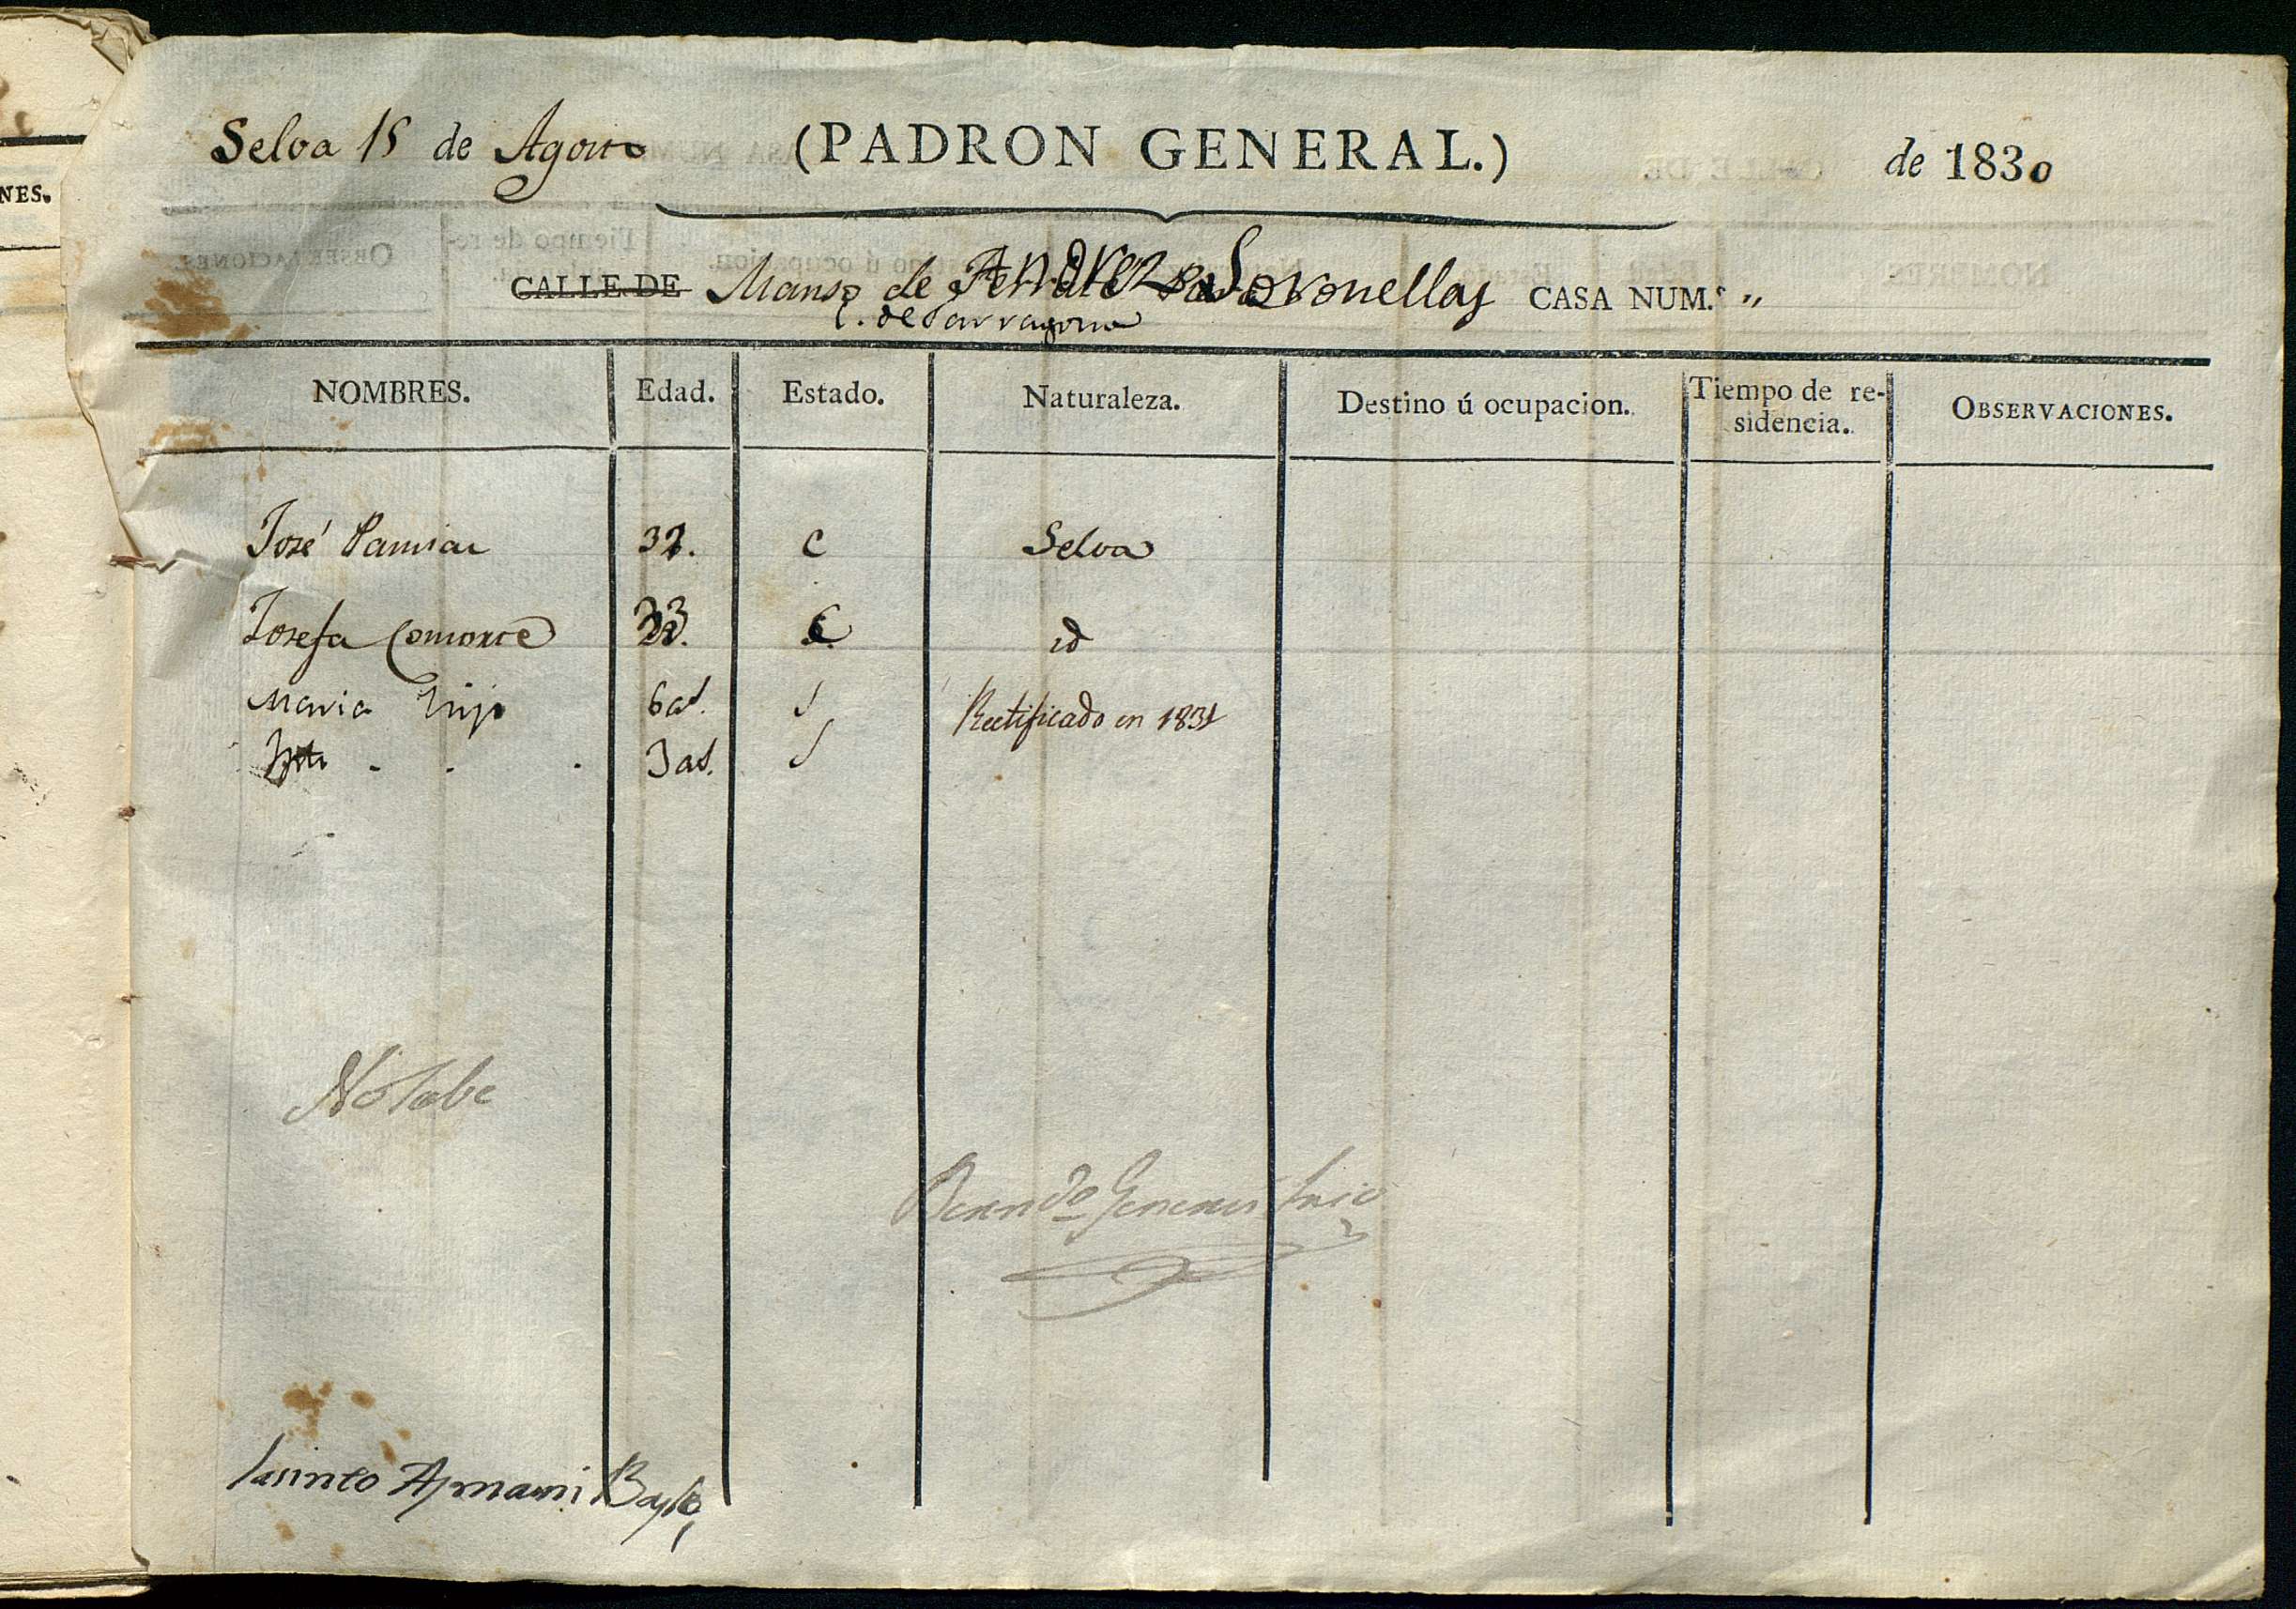 NES.
Selva 15 de Agosto (PADRON GENERAL.) de 1830
CALLE DE Manso de Soronellas CASA NUM.º „
C. de Tarragona
NOMBRES. Edad. Estado. Naturaleza. Destino ú ocupacion. Tiempo de re-sidencia. OBSERVACIONES.
José Pamias 32. C Selva
Josefa Consorte 33. C id
Maria hija 6 as. S Rectificado en 1831
3 as. S
Jasinto Bayle